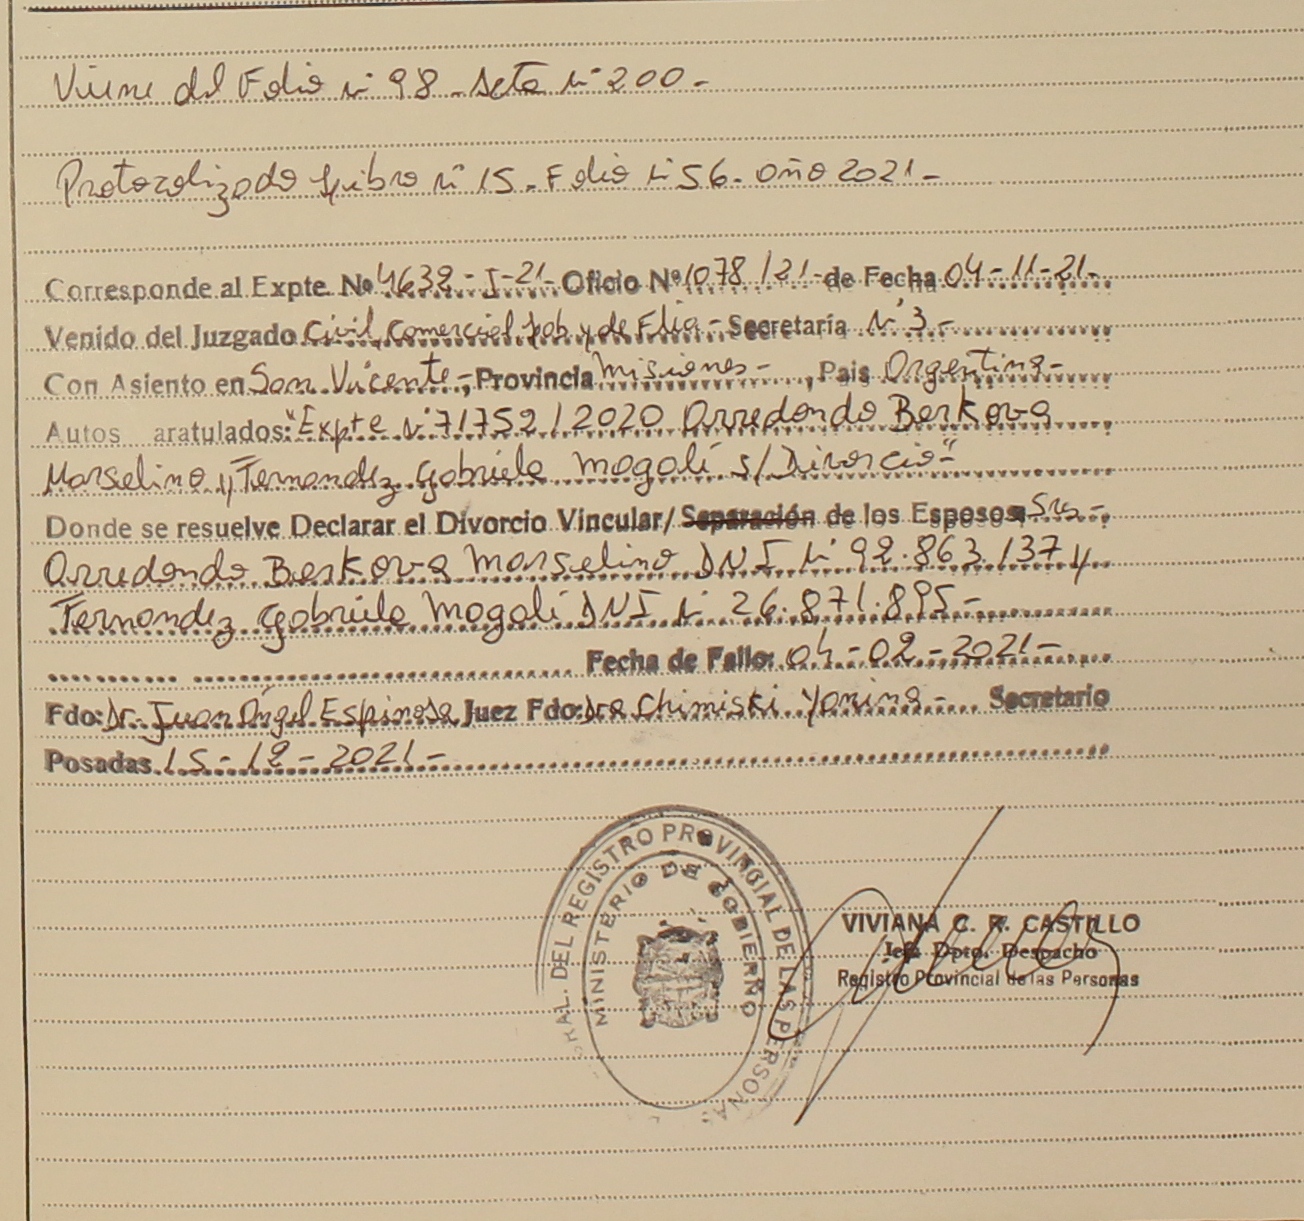 Viene del Folio nº 98 - Acta nº 200 -
Protocolizado Libro nº 15 - Folio nº 56 - año 2021 -
Corresponde al Expte Nº 4632 - I - 21 - Oficio Nº 1078 / 21 - de Fecha 04 - 11 - 21 -
Venido del Juzgado Civil, Comercial, Lab. y de Flia - Secretaría Nº 3 -
Con Asiento en San Vicente -, Provincia Misiones - , Pais Argentina -
Autos aratulados: "Expte Nº 71752 / 2020 Arredondo Berkova
Marselino y Fernandez Gabriela Magalí s/ Divorcio" -
Donde se resuelve Declarar el Divorcio Vincular/ Separación de los Esposos Srs -
Arredondo Berkova Marselino DNI Nº 92.863.137 y
Fernandez Gabriela Magalí DNI Nº 26.871.895 -
Fecha de Fallo: 04 - 02 - 2021 -
Fdo: Dr. Juan Ángel Espinosa Juez Fdo: Dra Chimiski Yanina - Secretario
Posadas 15 - 12 - 2021 -
GRAL. DEL REGISTRO PROVINCIAL DE LAS PERSONAS
MINISTERIO DE GOBIERNO
VIVIANA C. R. CASTILLO
Jefa Dpto. Despacho
Registro Provincial de las Personas